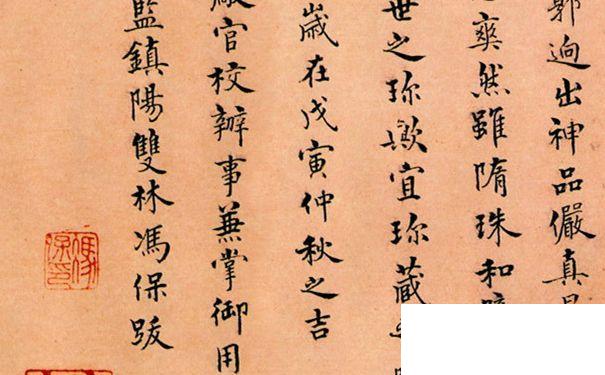 郭逈出神品儼真
爽然雖隋珠和
世之珎歟宜珎藏
歲在戊寅仲秋之吉
官校辦事兼掌御用
監鎮陽雙林馮保跋